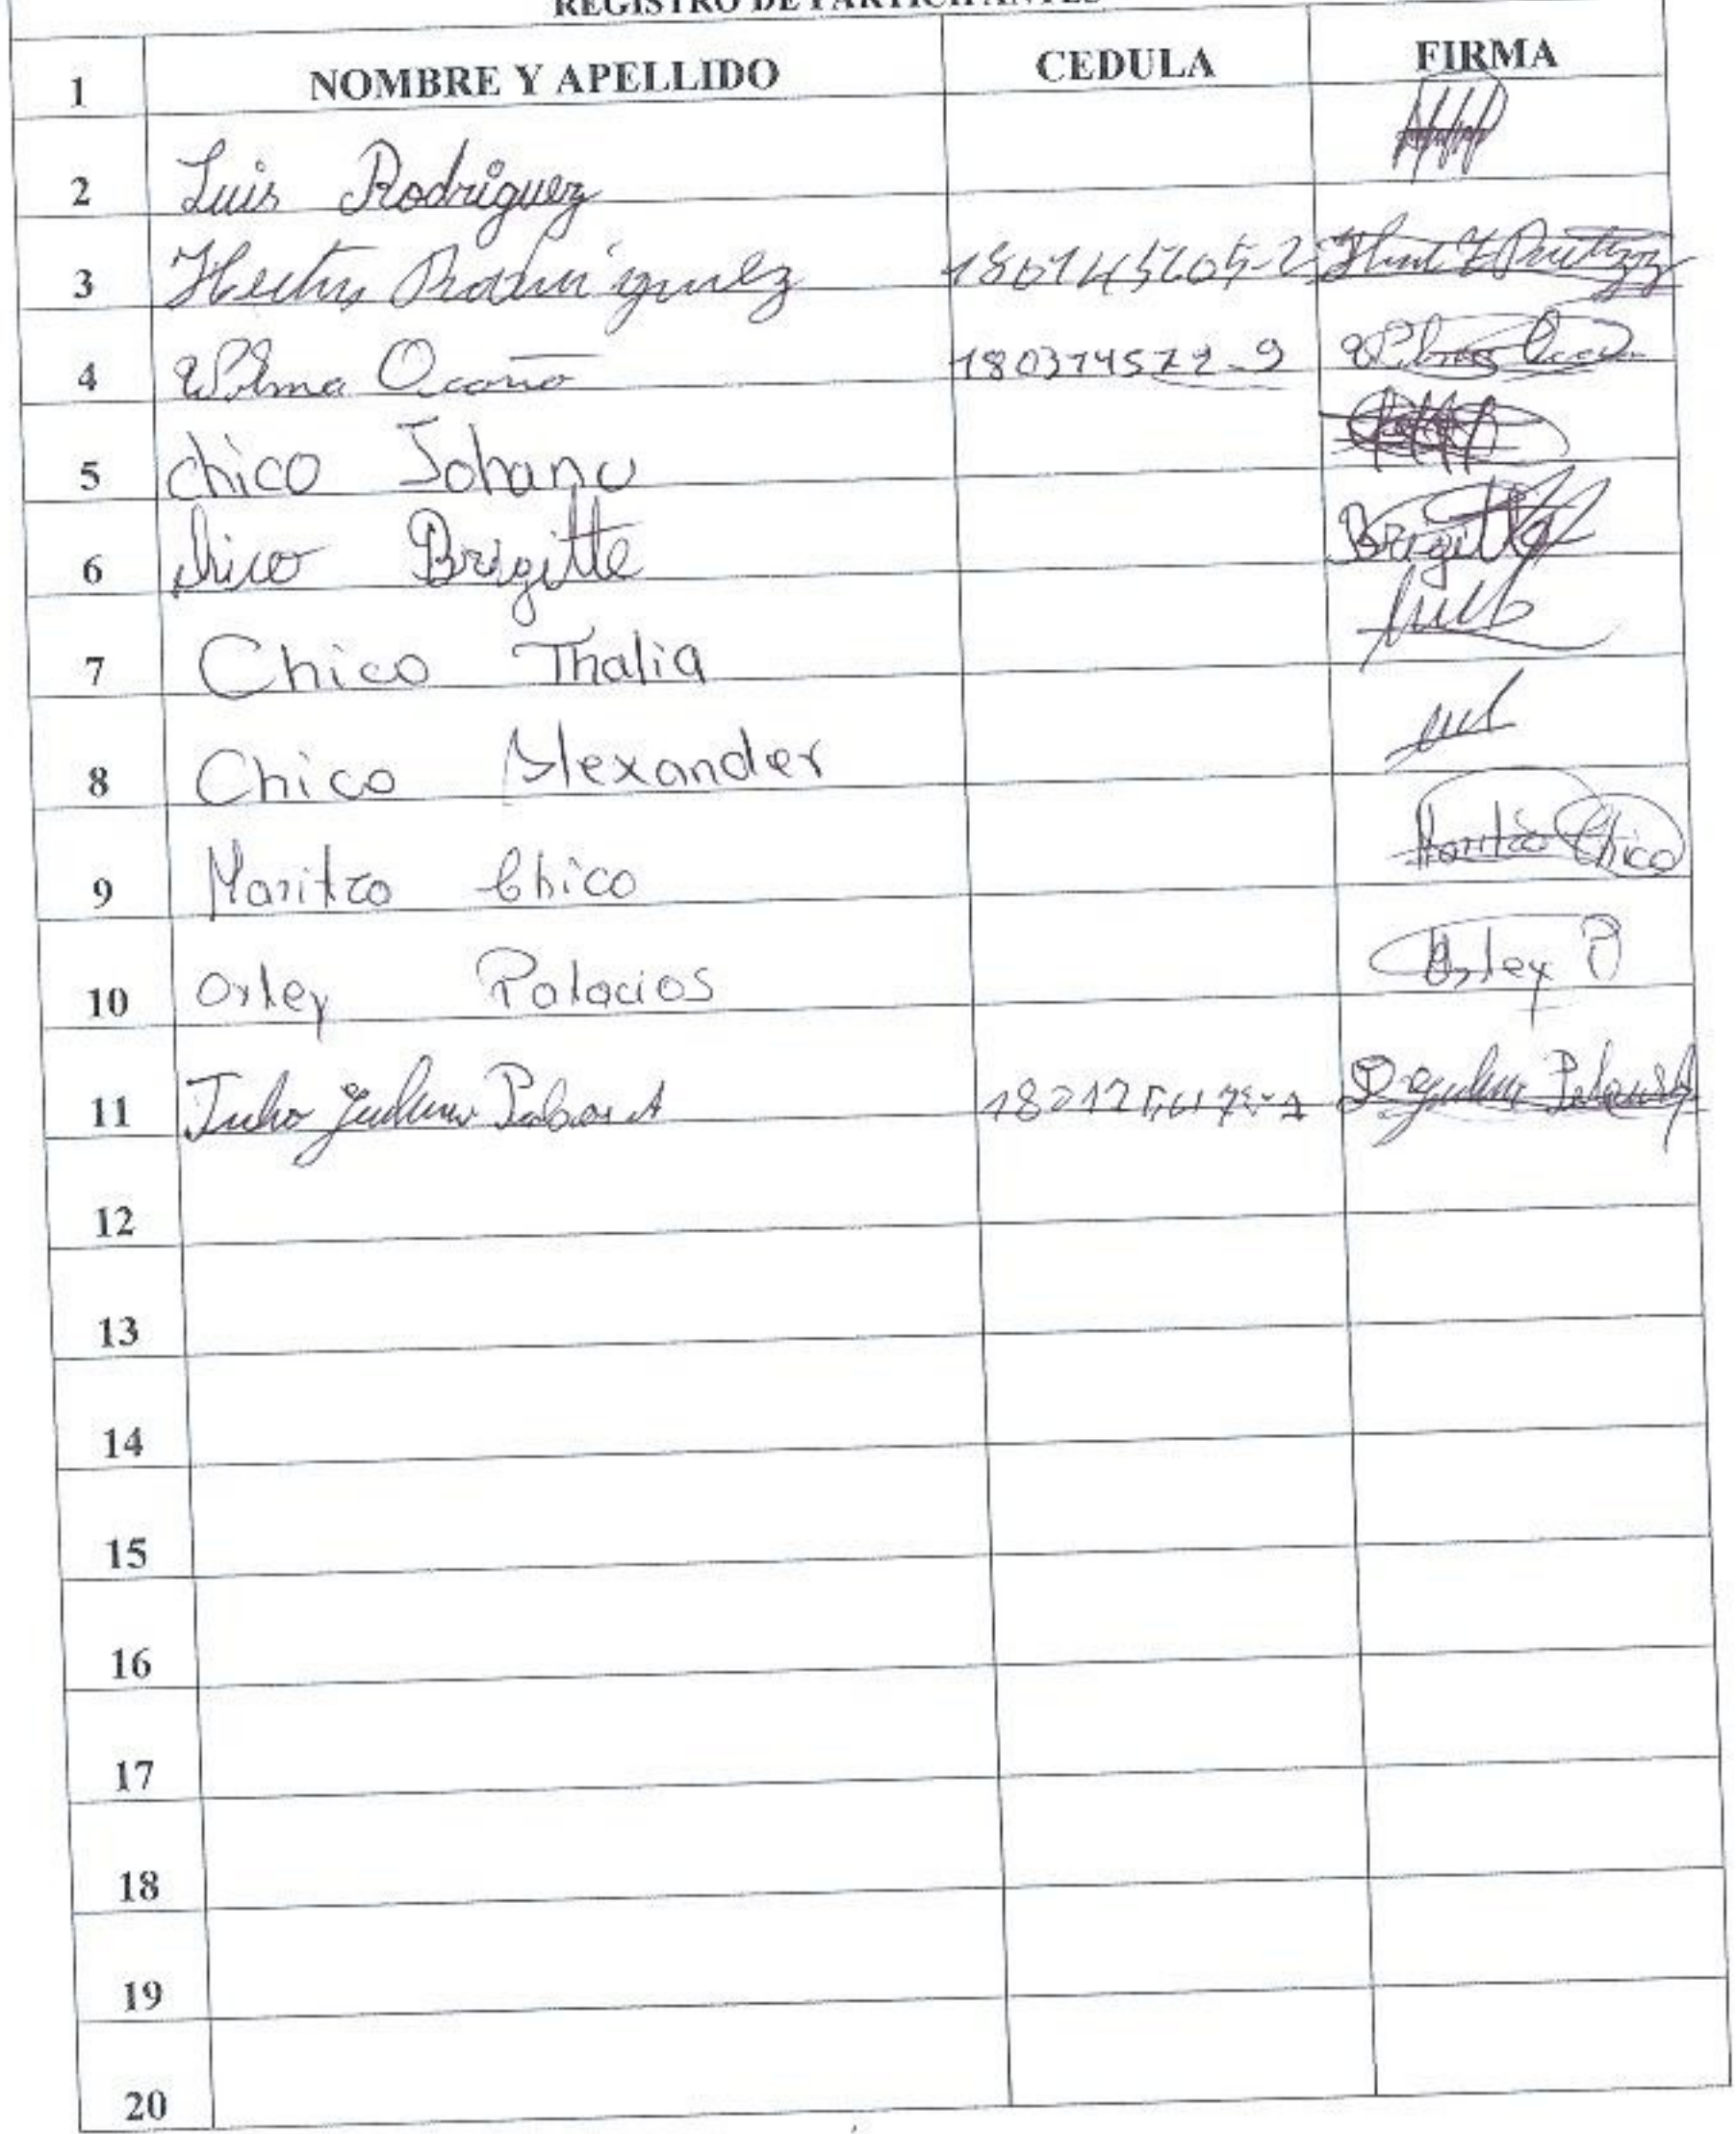 REGISTRO DE PARTICIPANTES
1 NOMBRE Y APELLIDO CEDULA FIRMA
2 Luis Rodriguez
3 Hector Rodriguez
4 Wilma Ocaña
5 chico Johana
6 chico Brigitte Brigitte
7 Chico Thalia
8 Chico Alexander
9 Maritza Chico Maritza Chico
10 Orley Palacios Orley P
11 Julio
12
13
14
15
16
17
18
19
20